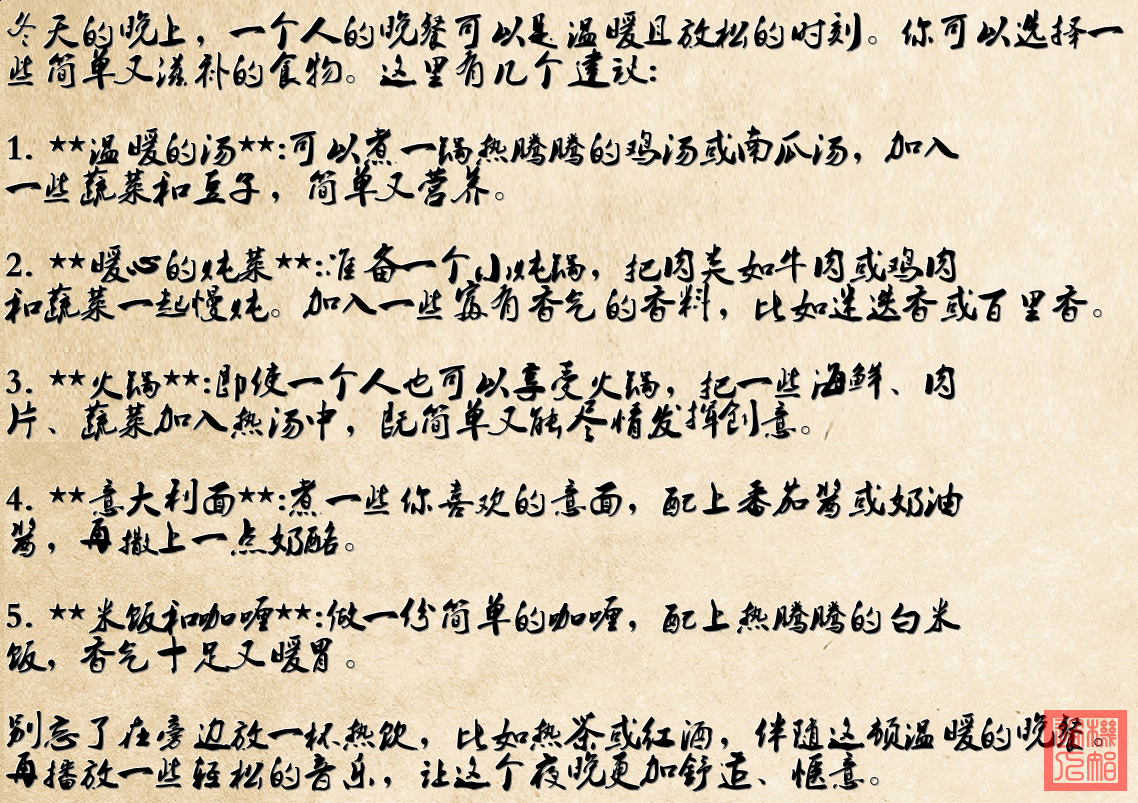 冬天的晚上，一个人的晚餐可以是温暖且放松的时刻。你可以选择一
些简单又滋补的食物。这里有几个建议：
1. **温暖的汤**:可以煮一锅热腾腾的鸡汤或南瓜汤，加入
一些蔬菜和豆子，简单又营养。
2. **暖心的炖菜**:准备一个小炖锅，把肉类如牛肉或鸡肉
和蔬菜一起慢炖。加入一些富有香气的香料，比如迷迭香或百里香。
3. **火锅**:即使一个人也可以享受火锅，把一些海鲜、肉
片、蔬菜加入热汤中，既简单又能尽情发挥创意。
4. **意大利面**:煮一些你喜欢的意面，配上番茄酱或奶油
酱，再撒上一点奶酪。
5. **米饭和咖喱**:做一份简单的咖喱，配上热腾腾的白米
饭，香气十足又暖胃。
别忘了在旁边放一杯热饮，比如热茶或红酒，伴随这顿温暖的晚餐。
再播放一些轻松的音乐，让这个夜晚更加舒适、惬意。